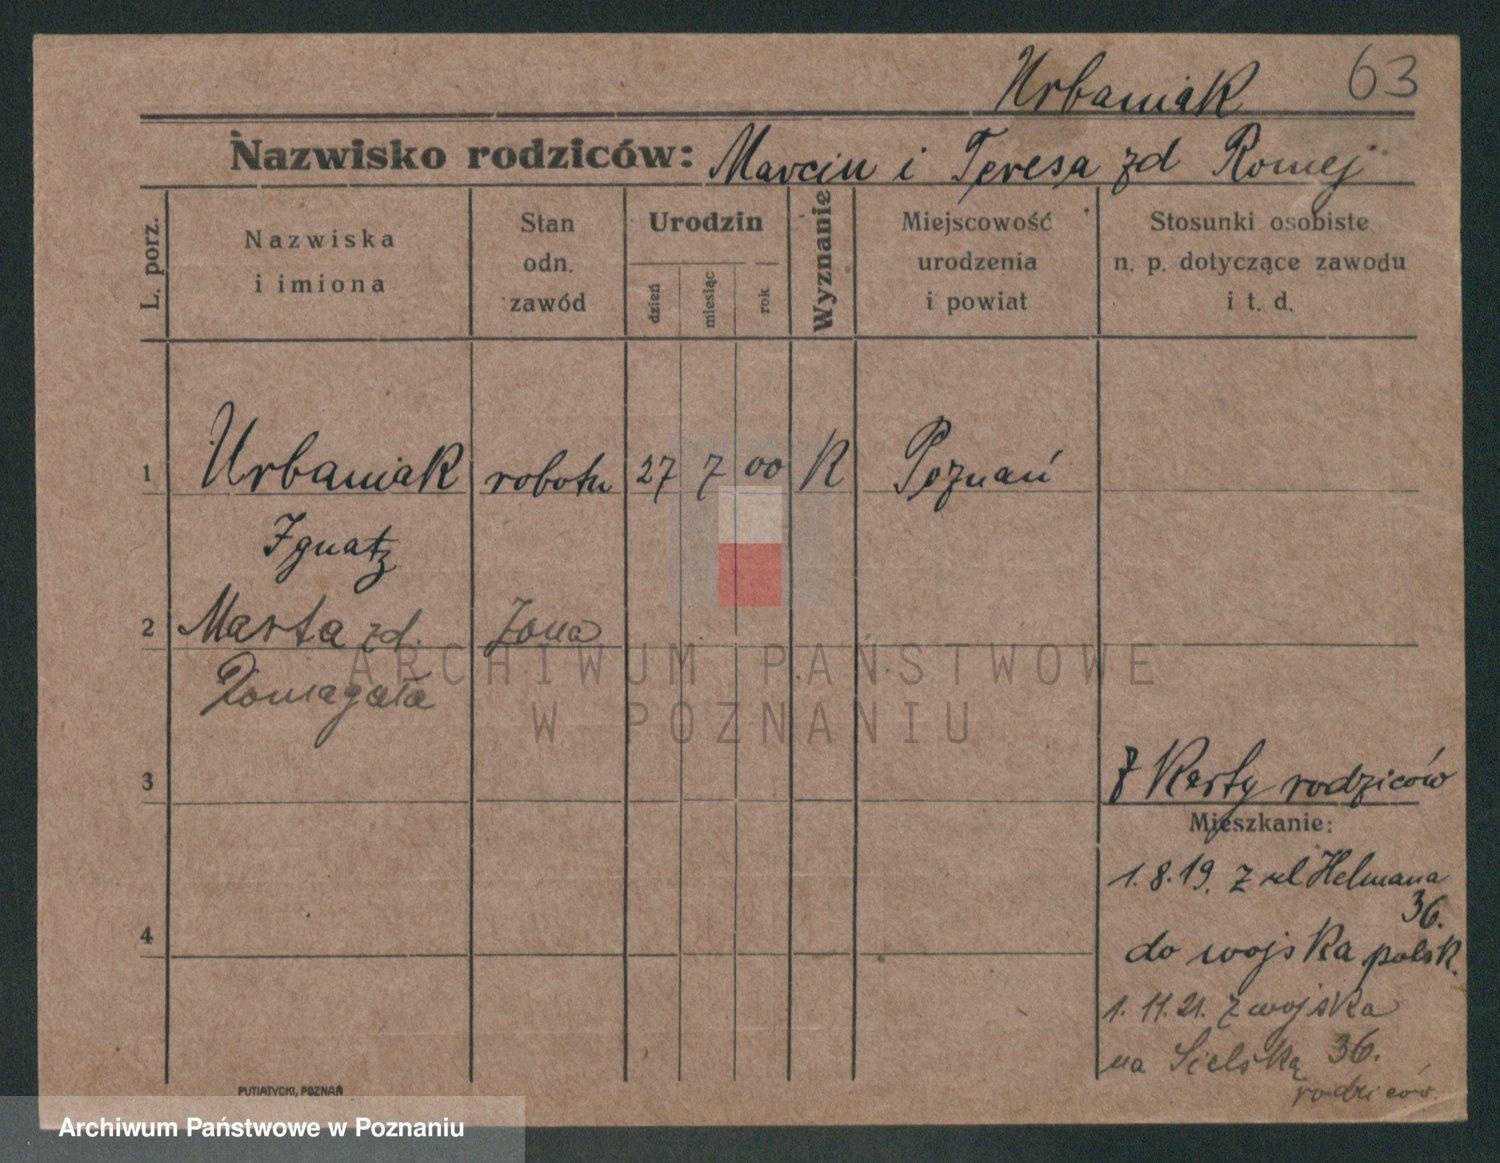 Urbaniak 63
Nazwisko rodziców: Marcin i Teresa zd Romej
L. porz.
Nazwiska
i imiona
Stan
odn.
zawód
Urodzin
dzień
miesiąc
rok
Wyznanie
Miejscowość
urodzenia
i powiat
Stosunki osobiste
n. p. dotyczące zawodu
i t. d.
1 Urbaniak robotn 27 7 00 K Poznań
Ignatz
2 Marta zd. żona
Domagała
ARCHIWUM PAŃSTWOWE
W POZNANIU
3 Z Karty rodziców
Mieszkanie:
1.8.19. z ul Helmana
36.
4 do wojska polsk.
1. 11. 21. z wojska
na Sielską 36.
rodziców.
PUTIATYCKI, POZNAŃ
Archiwum Państwowe w Poznaniu